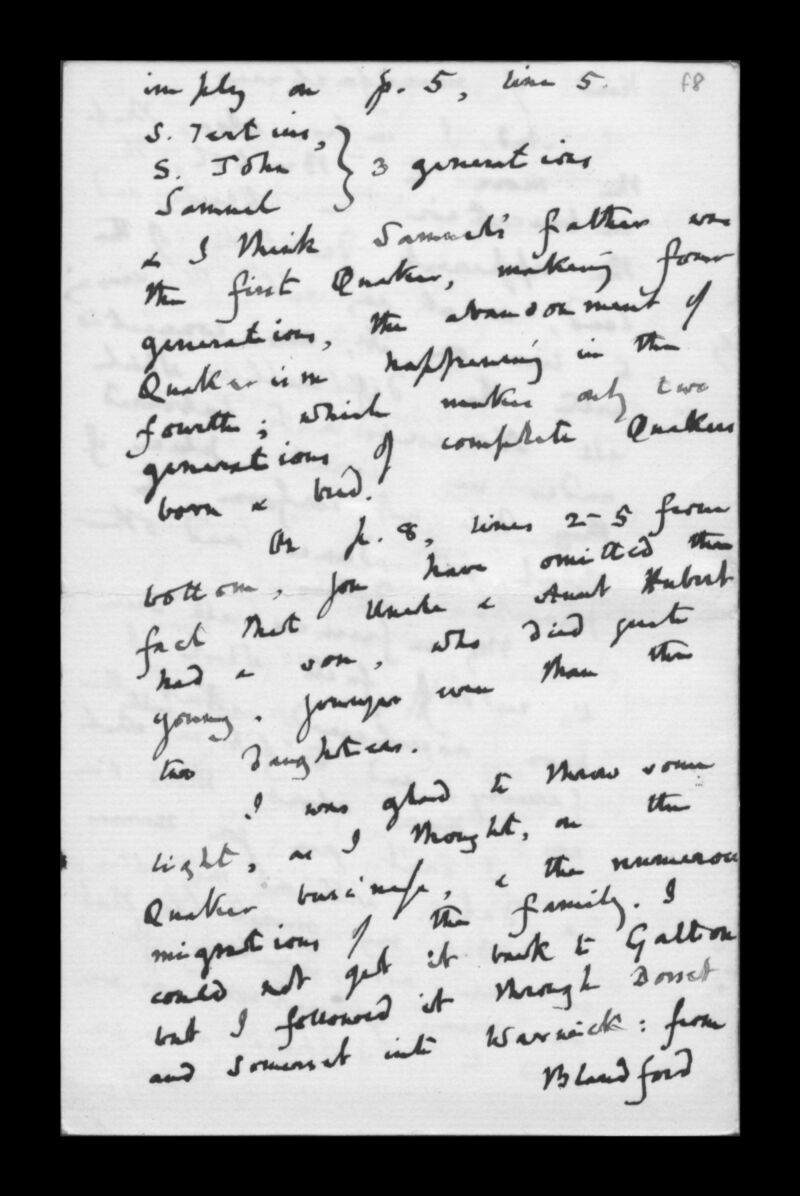 f8
imply on p. 5, line 5.
S. Tertius,
S. John } 3 generations
Samuel
& I think Samuel's father was
the first Quaker, making four
generations, the abandonment of
Quakerism happening in the
fourth; which makes only two
generations of complete Quakers
born & bred.
On p. 8, lines 2-5 from
bottom, you have omitted the
fact that Uncle & Aunt Hubert
had a son, who died quite
young. younger even than the
two daughters.
I was glad to throw some
light, as I thought, on the
Quaker business, & the numerous
migrations of the family. I
could not get it back to Galton
but I followed it through Dorset
and Somerset into Warwick: from
Blandford